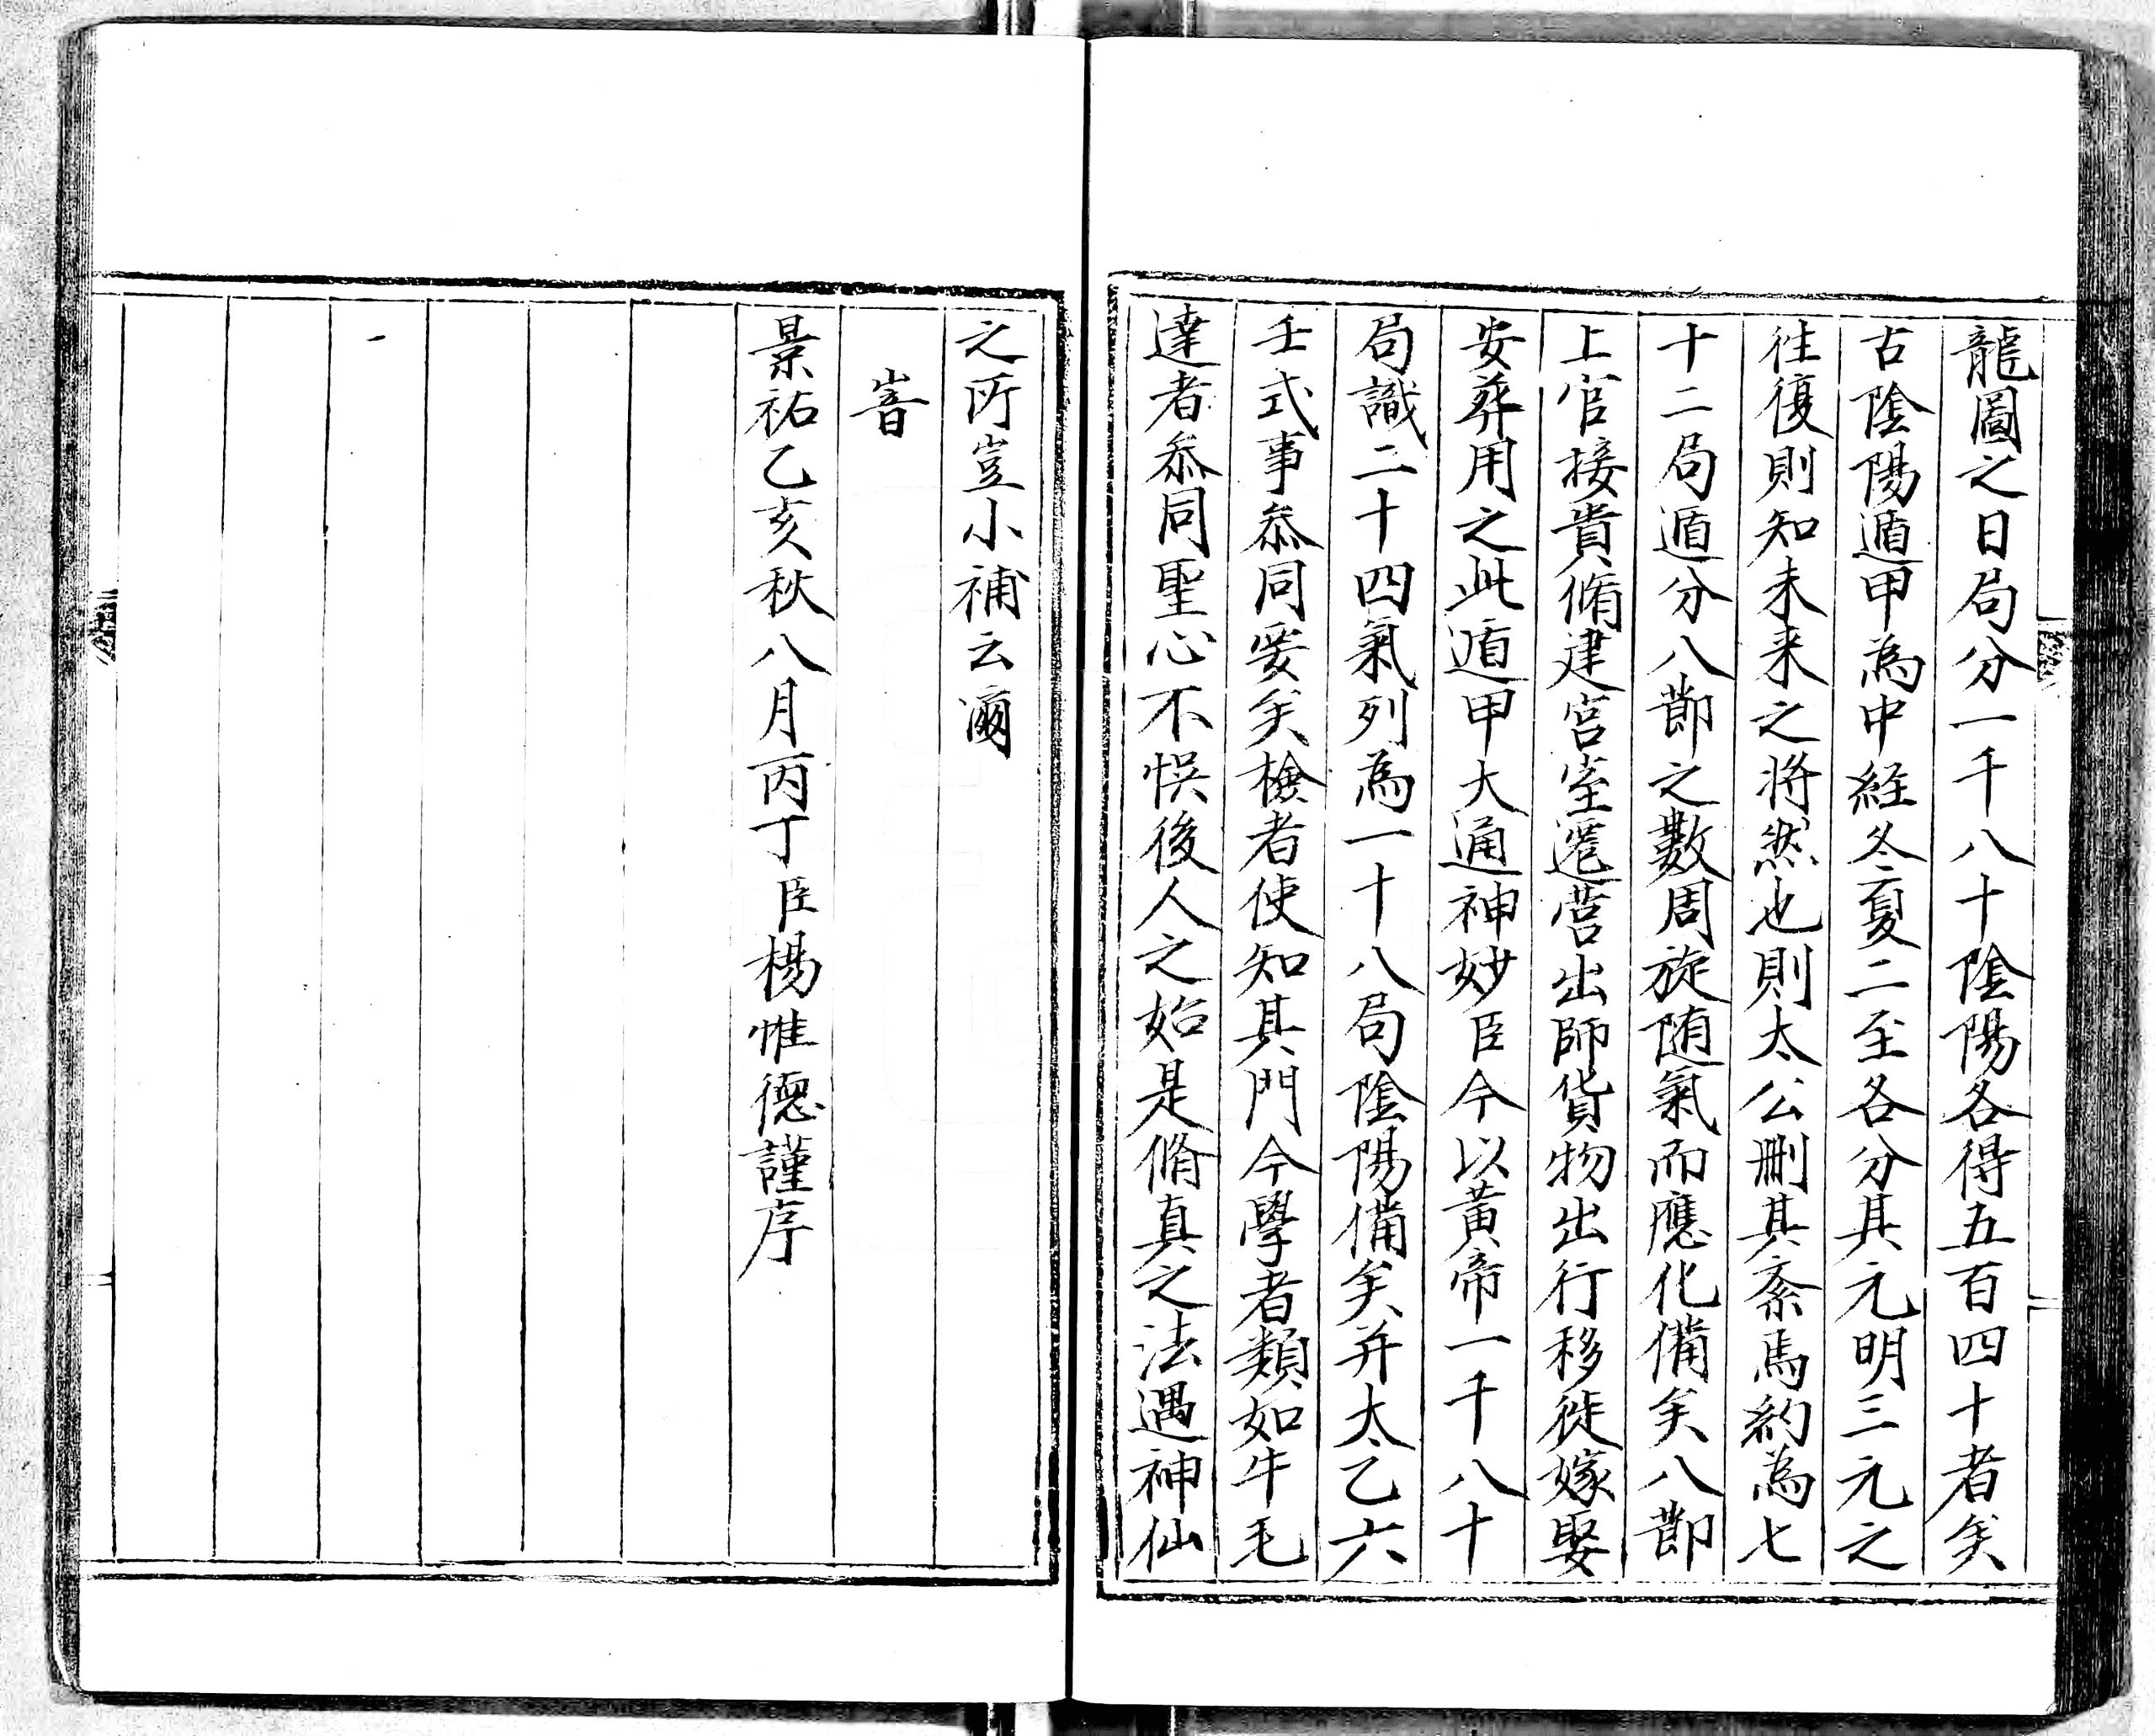 龍圖之日局分一千八十陰陽各得五百四十者矣
古陰陽遁甲為中經冬夏二至各分其元明三元之
往復則知未来之將然也則太公刪其紊焉約為七
十二局遁分八節之數周旋随氣而應化備矣八節
上官接貴脩建宮室遷營出師貨物出行移徙嫁娶
安葬用之此遁甲大通神妙臣今以黃帝一千八十
局識二十四氣列為一十八局陰陽備矣并太乙六
壬式事叅同要矣檢者使知其門今學者類如牛毛
達者叅同聖心不悞後人之始是脩真之法遇神仙
之所豈小補云爾
旹
景祐乙亥秋八月丙丁臣楊惟德謹序